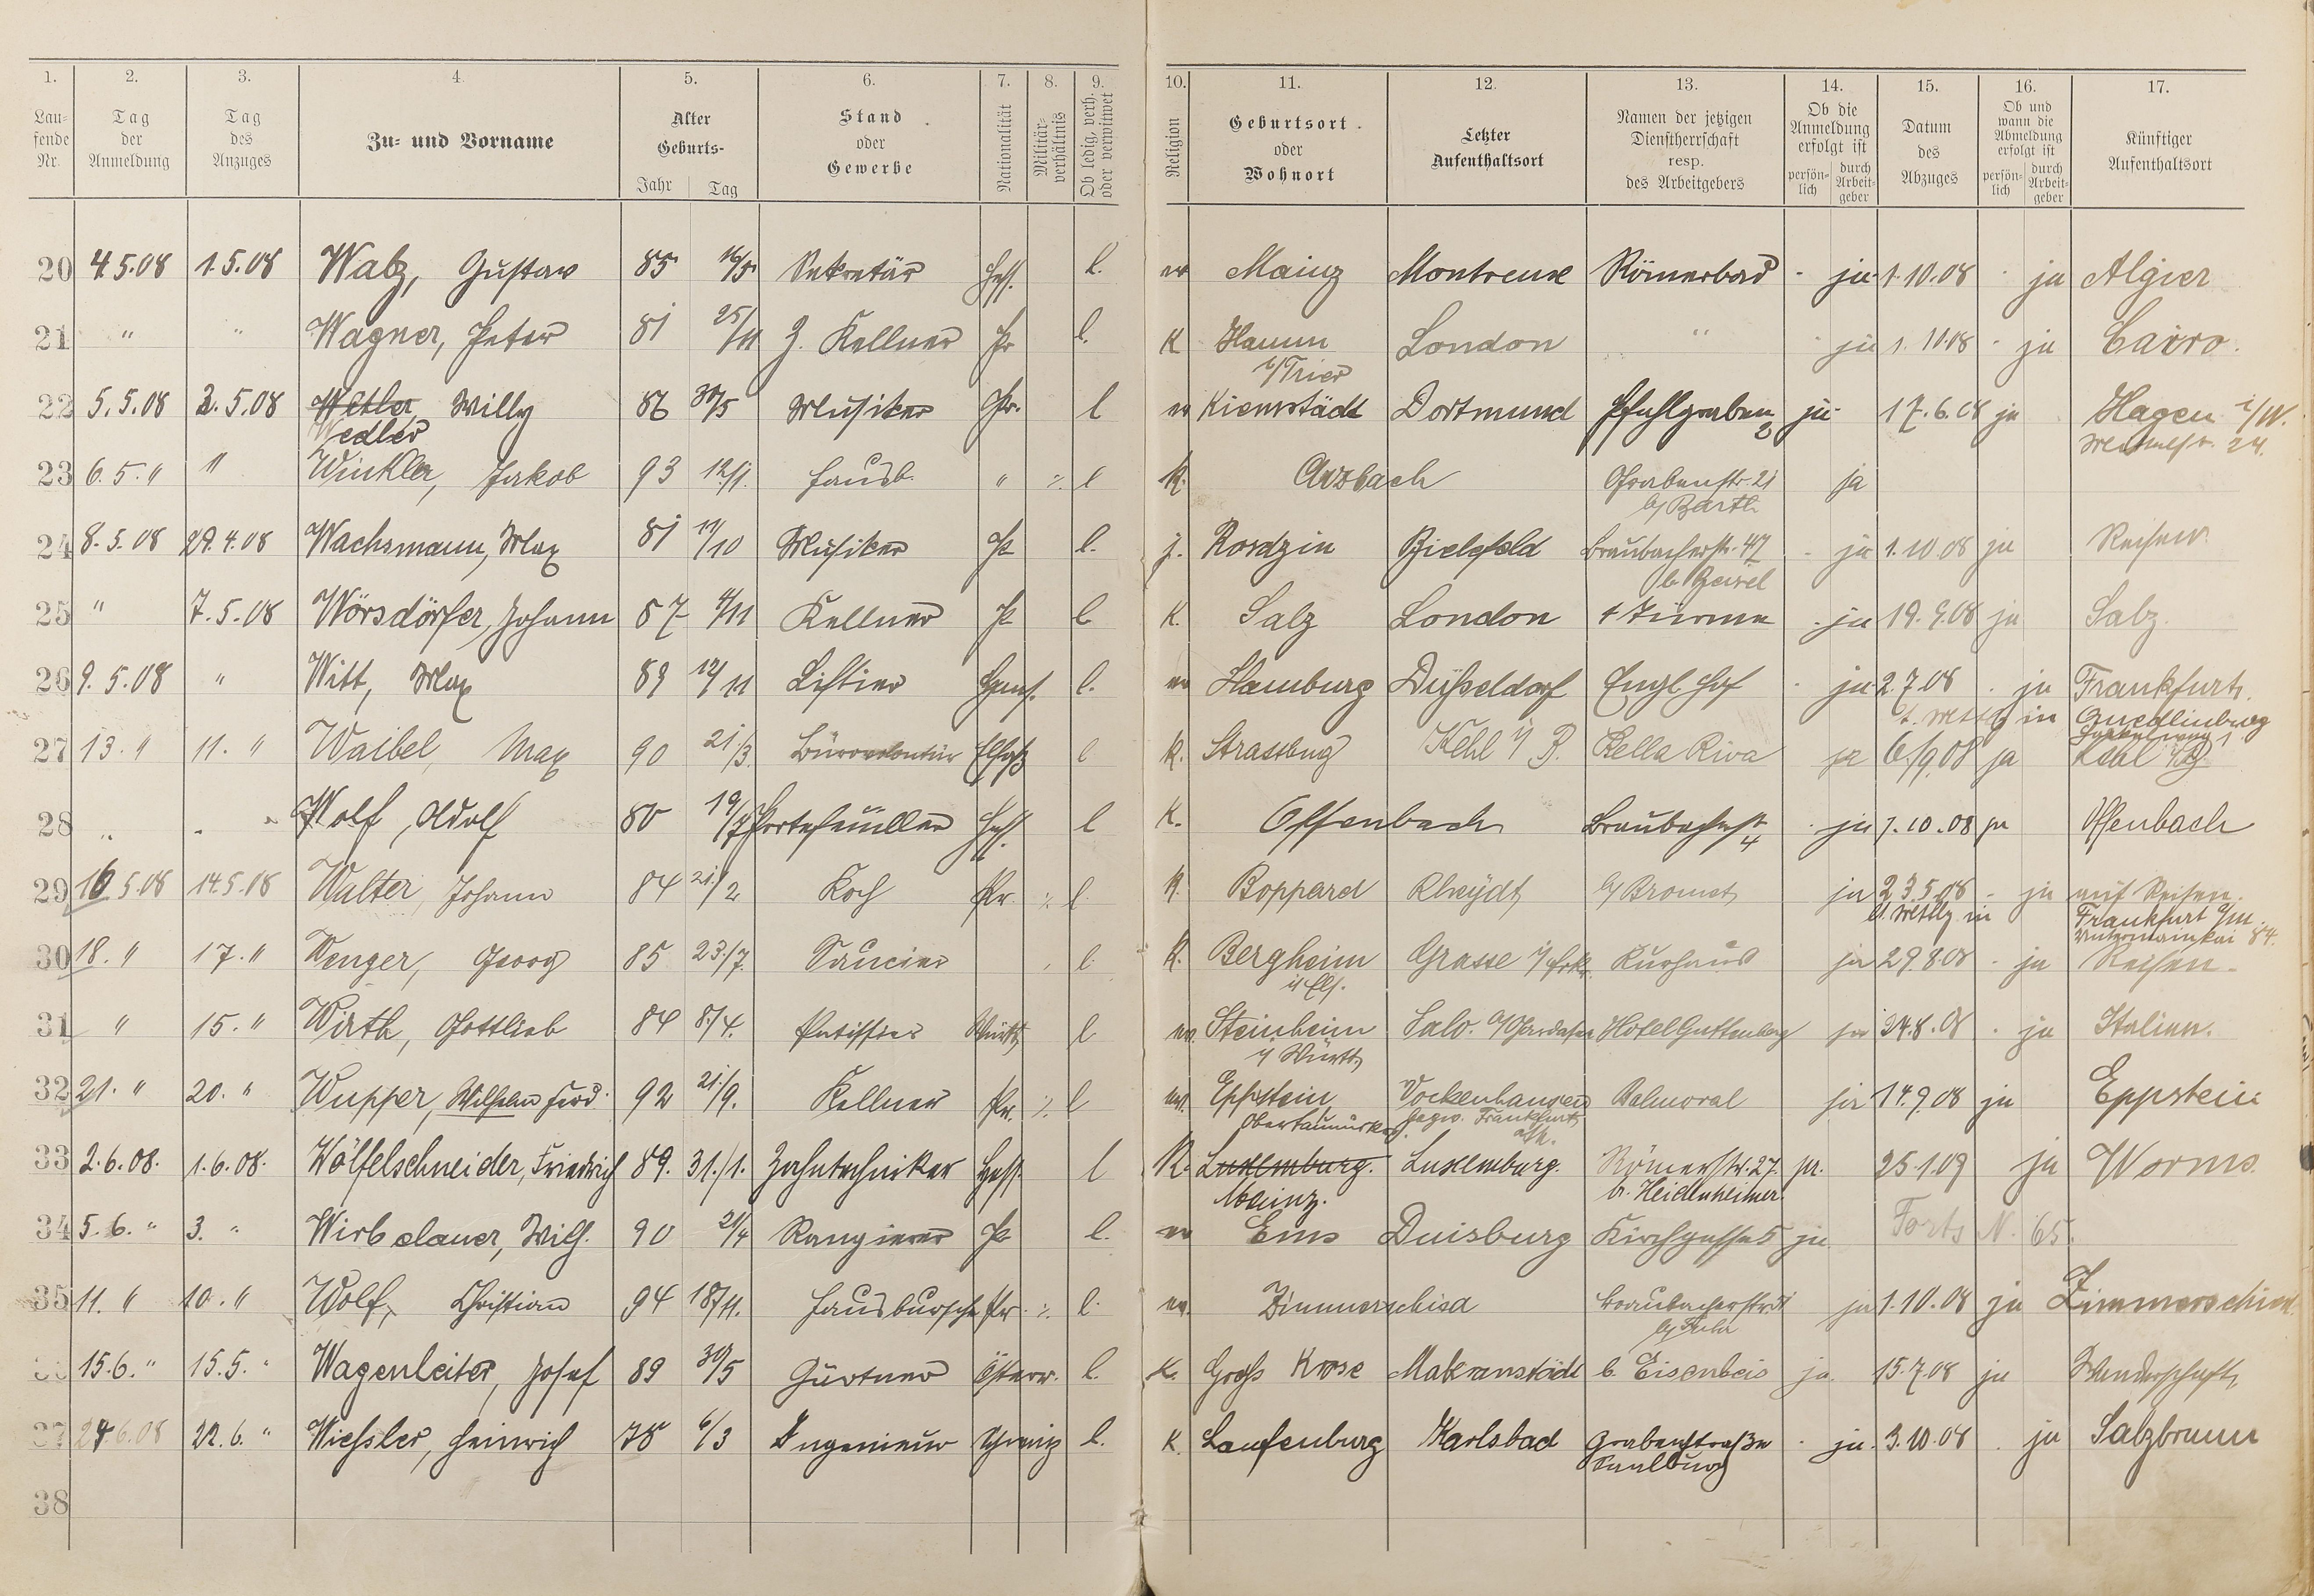 1. 2. 3. 4. 5. 6. 7. 8. 9. 10. 11. 12. 13. 14. 15. 16. 17.
Lau-fende Nr. Tag der Anmeldung Tag des Anzuges Zu- und Vorname Alter Geburts- Jahr Tag Stand oder Gewerbe Nationalität Militär-verhältnis Ob ledig, verh. oder verwitwet Religion Geburtsort oder Wohnort Letzter Aufenthaltsort Namen der jetzigen Dienstherrschaft resp. des Arbeitgebers Ob die Anmeldung erfolgt ist persön-lich durch Arbeit-geber Datum des Abzuges Ob und wann die Abmeldung erfolgt ist persön-lich durch Arbeit-geber Künftiger Aufenthaltsort
20 4.5.08 1.5.08 Walz, Gustav 85 16/5 Sekretär Hess. l. ev Mainz Montreux Römerbad - ja 1.10.08 - ja Algier
21 " " Wagner, Peter 81 25/11 Z. Kellner Pr l. K Hamm London " - ja 1.10.08 - ja Cairo.
b/Trier
22 5.5.08 2.5.08 Wetler, Willy 86 30/5 Musiker Pr. l ev Kiemstädt Dortmund Pfuhlgraben 2 ja 17.6.08 ja Hagen i/W.
Wedler 24.
23 6.5. " " Winkler, Jakob 93 12/1. Hausb. " ./. l K. Arzbach Grabenstr. 21 ja
b/Barth
24 8.5.08 29.4.08 Wachsmann, Max 81 11/10 Musiker Pr l. j. Rosdzin Bielefeld Braubacherstr. 47 - ja 1.10.08 ja Reisen.
25 " 7.5.08 Wörsdörfer, Johann 87 4/11 Kellner Pr l. K. Salz London 4 Türme - ja 19.9.08 ja Salz.
26 9.5.08 " Witt, Max 89 12/11 Liftier Hans. l. ev Hamburg Düsseldorf Engl. Hof - ja 2.7.08 - ja Frankfurt.
Quedlinburg
27 13. " 11. " Waibel, Max 90 21/3. Bürovolontär Elsaß l K. Strassburg Kehl i/B. Bella Riva ja 6/9.08 ja Kehl i/B
28 " - " Wolf, Adolf 80 19/7 Portefeuiller Hess. l K. Offenbach Braubacherstr 4 - ja 1.10.08 ja Offenbach
29 16.5.08 14.5.08 Walter, Johann 84 21/2 Koch Pr. ./. l K. Boppard Rheydt b/Bromet ja 23.5.08 - ja auf Reisen.
Frankfurt a/m.
Untermainkai 84.
30 18. " 17. " Wenger, Georg 85 23./7. Saucier l. K. Bergheim Grasse i/Frkr. Kurhaus ja 29.8.08 - ja Reisen.
i/Els.
31 " 15. " Wirth, Gottlieb 84 8./4. Patissier Württ l ev. Steinheim Salo. a/Gardasee Hotel Guttenberg ja 24.8.08 - ja Italien.
i/Württ
32 21. " 20. " Wupper, Wilhelm Ferd. 92 21./9. Kellner Pr. ./. l ev. Eppstein Vockenhausen Balmoral ja 14.9.08 ja Eppstein
Obertaunuskr. Frankfurt
33 2.6.08. 1.6.08. Wölfelschneider, Friedrich 89. 31./1. Zahntechniker Hess. l K. Luxemburg. Luxemburg. Römerstr. 27. ja. 25.1.09 ja Worms.
Mainz. b. Heidenheimer
34 5.6. " 3. " Wirbelauer, Wilh. 90 2/4 Rangierer Pr l. ev Ems Duisburg Kirchgasse 5 ja Forts N. 65.
35 11. " 10. " Wolf, Christian 94 18/11. Hausbursche Pr. ./. l. ev. Zimmerschied Braubacherstr. ja 1.10.08 ja Zimmerschied
36 15.6. " 15.5. " Wagenleiter, Josef 89 30/5 Gärtner Österr. l. K. Gross Krosse Makranstädt b. Eisenbeis ja. 15.7.08 ja Wanderschaft
37 24.6.08 22.6. " Wiessler, Heinrich 78 6/3 Ingenieur Schweiz l. K. Laufenburg Karlsbad Grabenstraße - ja. 3.10.08 - ja Salzbrunn
Saalburg
38